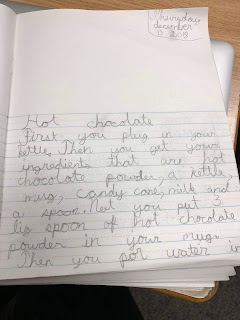 Thursday
december
13 2018
Hot chocolate
First you plug in your
kettle. Then you get your
ingredients that are hot
chocolate powder, a kettle,
mug, candy cane, milk and
a spoon. Next you put 3
big spoon of hot chocolate
powder in your mug.
Then you por water in